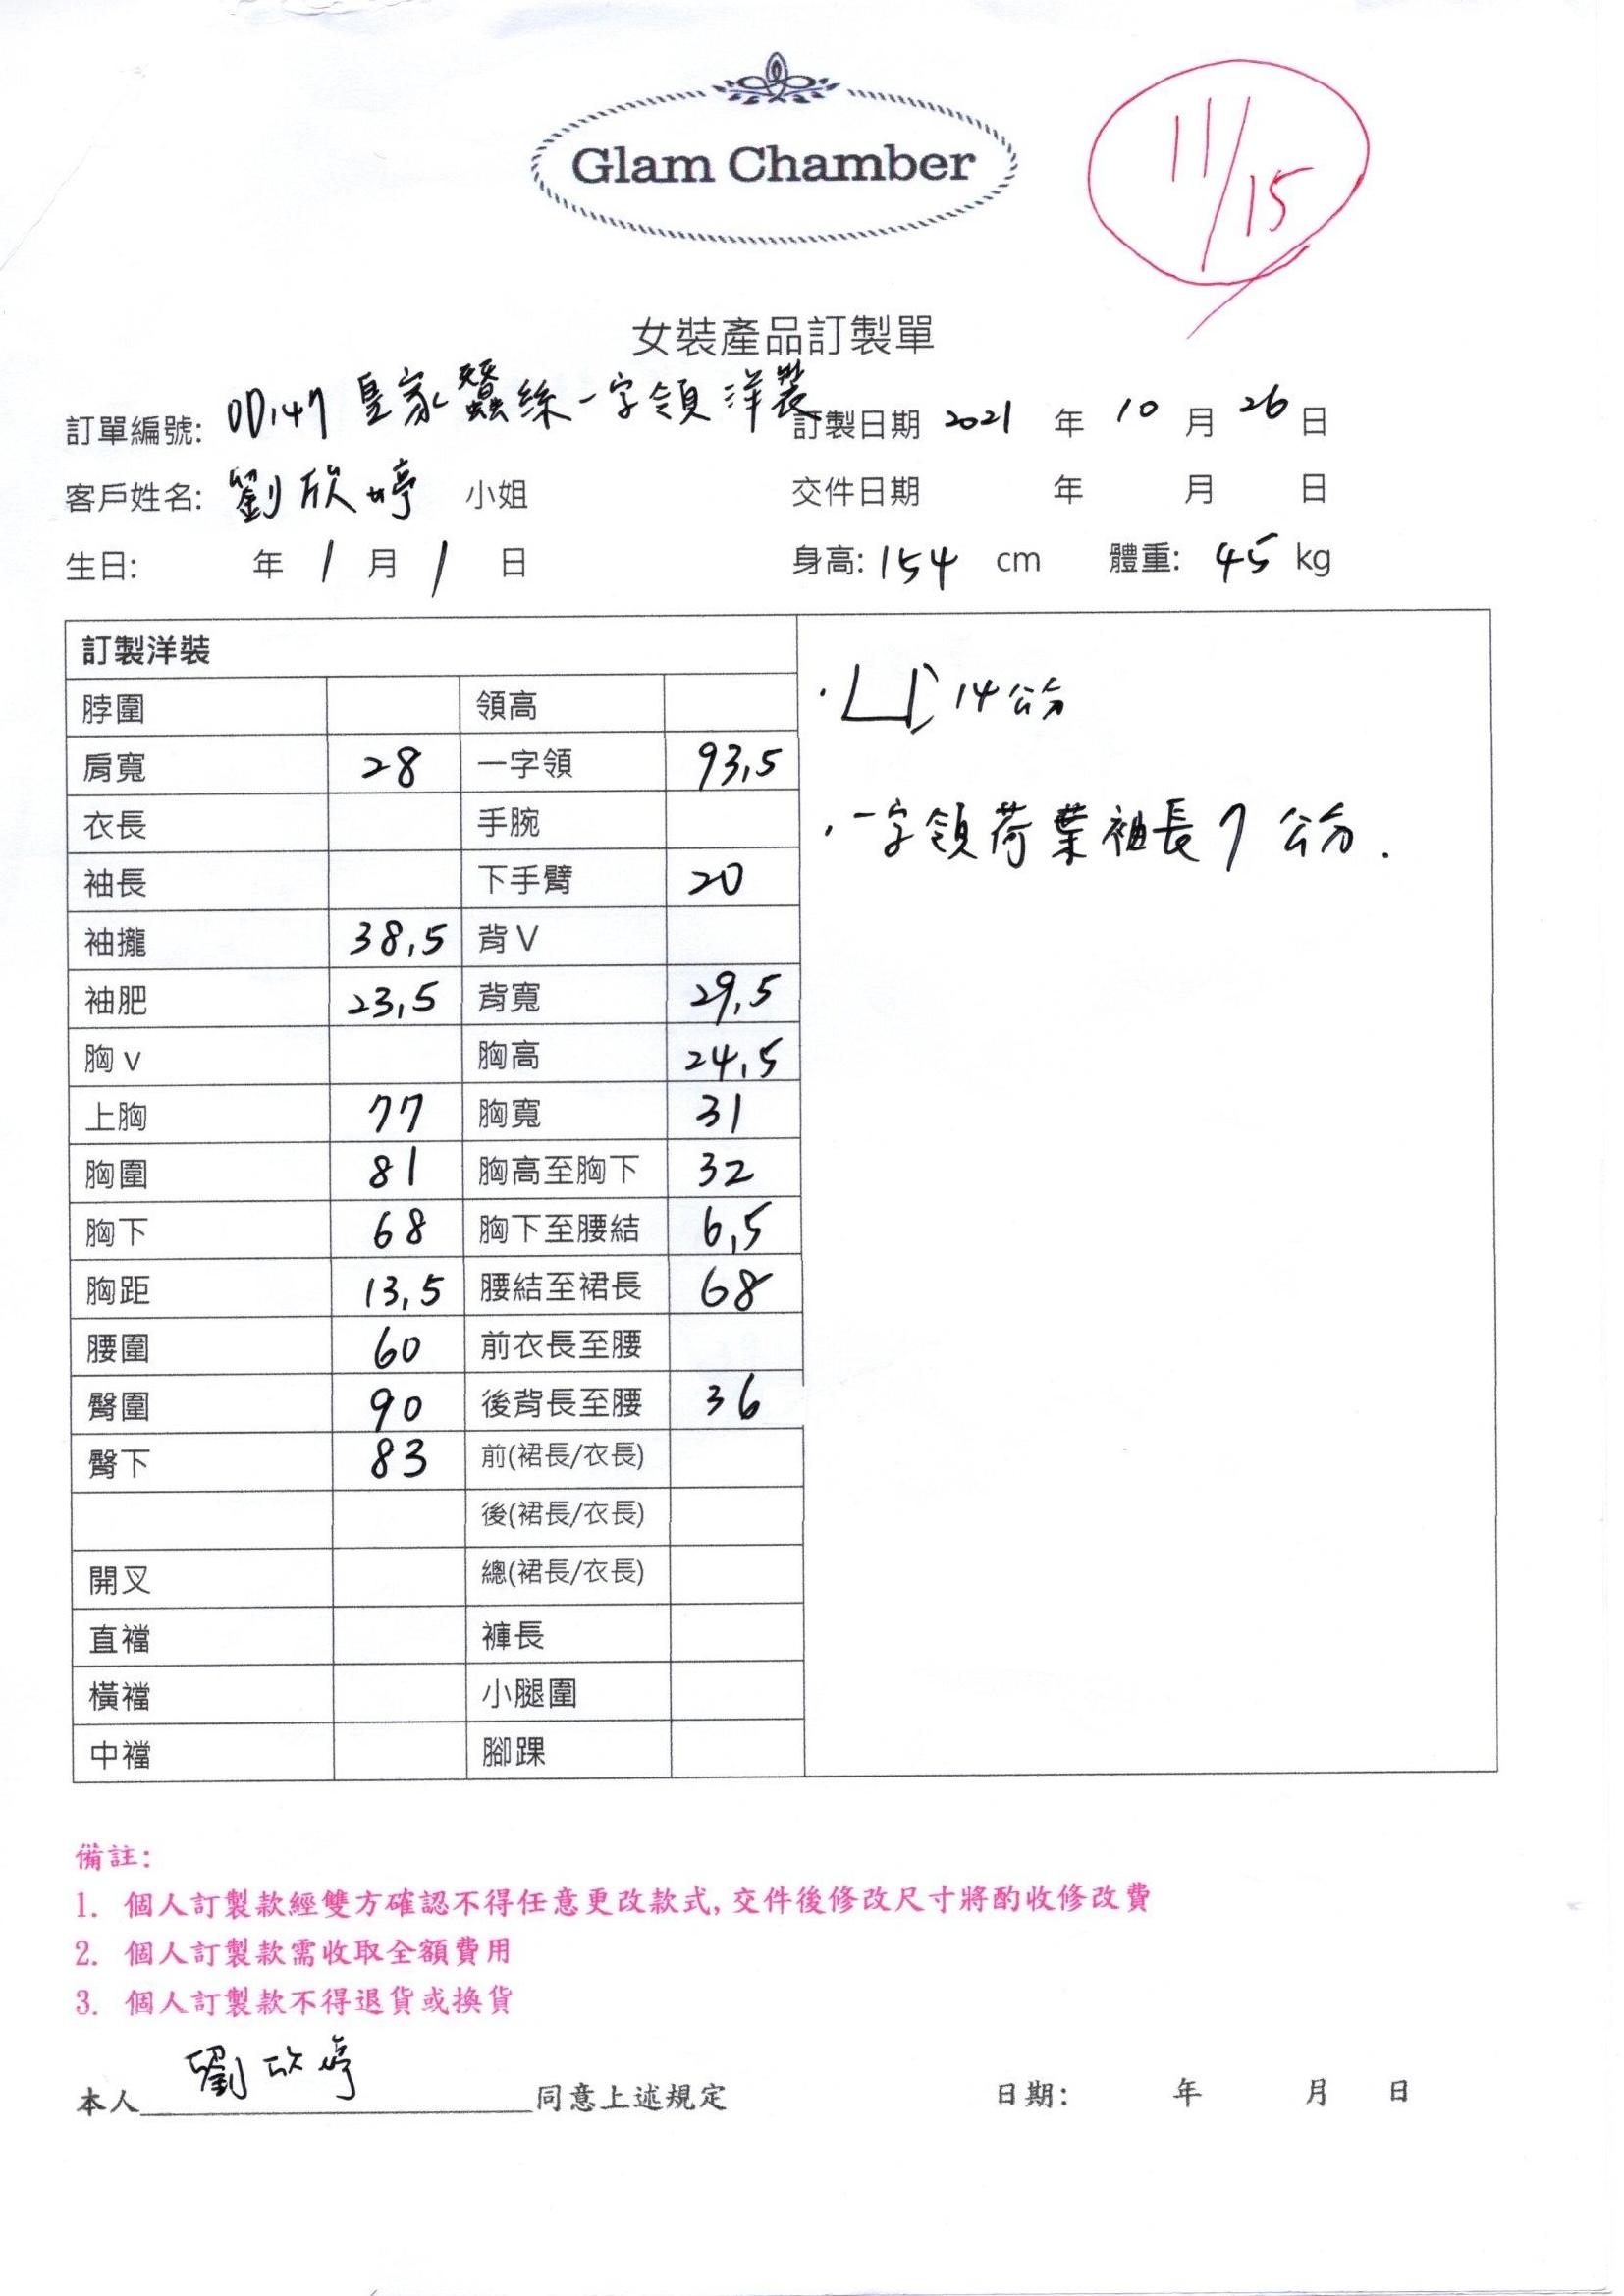 Glam Chamber
11/15
女裝產品訂製單
訂單編號: 皇家蠶絲一字領洋裝 訂製日期 2021 年 10 月 26 日
客戶姓名: 劉欣婷 小姐 交件日期 年 月 日
生日: 年 1 月 1 日 身高: 154 cm 體重: 45 kg
訂製洋裝
脖圍 領高
肩寬 28 一字領 93,5
衣長 手腕
袖長 下手臂 20
袖攏 38,5 背V
袖肥 23,5 背寬 29,5
胸v 胸高 24,5
上胸 77 胸寬 31
胸圍 81 胸高至胸下 32
胸下 68 胸下至腰結 6,5
胸距 13,5 腰結至裙長 68
腰圍 60 前衣長至腰
臀圍 90 後背長至腰 36
臀下 83 前(裙長/衣長)
後(裙長/衣長)
開叉 總(裙長/衣長)
直襠 褲長
橫襠 小腿圍
中襠 腳踝
14公分
一字領荷葉袖長7公分.
備註:
1. 個人訂製款經雙方確認不得任意更改款式,交件後修改尺寸將酌收修改費
2. 個人訂製款需收取全額費用
3. 個人訂製款不得退貨或換貨
本人 劉欣婷 同意上述規定 日期: 年 月 日